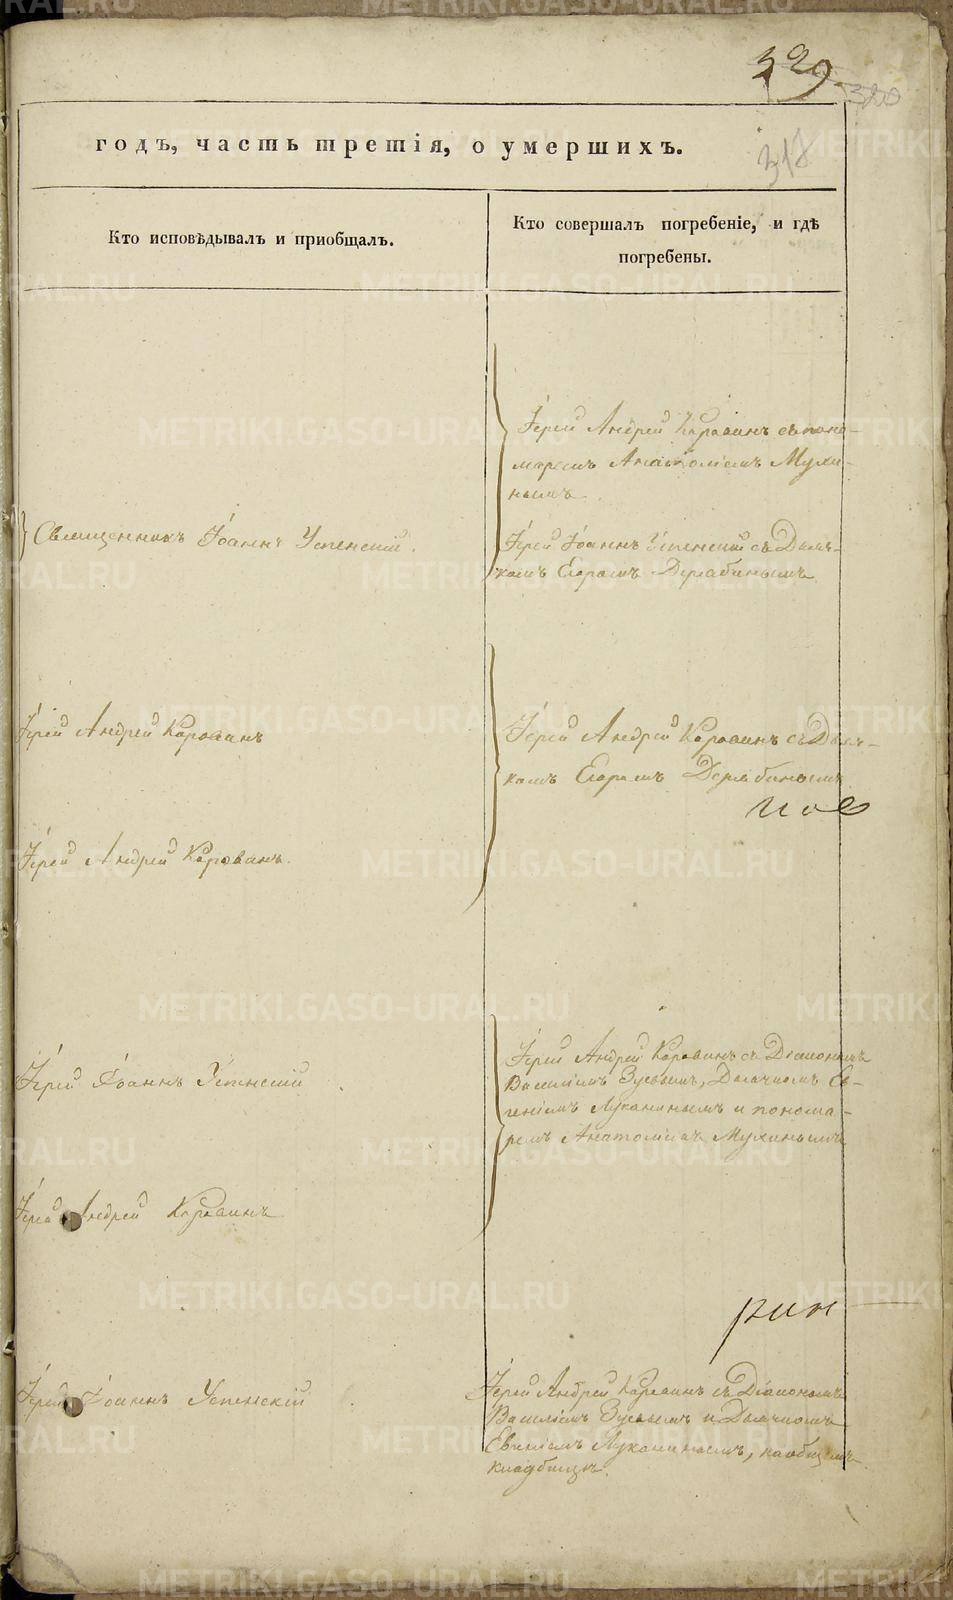 329.
320
317
годъ, часть третія, о умершихъ.
Кто исповѣдывалъ и приобщалъ.
Кто совершалъ погребеніе, и гдѣ
погребены.
Іерей Андрей Караваинъ съ поно-
маремъ Анатоліемъ Мухи-
нымъ.
Священникъ Іоаннъ Успенскій.
Іерей Іоаннъ Успенскій съ Дьяч-
комъ Егоромъ Дерябинымъ
Іерей Андрей Караваинъ
Іерей Андрей Караваинъ съ Дьяч-
комъ Егоромъ Дерябинымъ
Іерей Андрей Караванъ.
Іерей Іоаннъ Успенскій
Іерей Андрей Караваинъ съ Діакономъ
Василіемъ Зуевымъ, Дьячкомъ Ев-
геніемъ Луканинымъ и понома-
ремъ Анатоліемъ Мухинымъ
Іерей Андрей Караваинъ
рин
Іерей Іоаннъ Успенскій
Іерей Андрей Караваинъ съ Діакономъ
Василіемъ Зуевымъ и Дьячкомъ
Евгеніемъ Луканинымъ, на общемъ
кладбищѣ.
METRIKI.GASO-URAL.RU